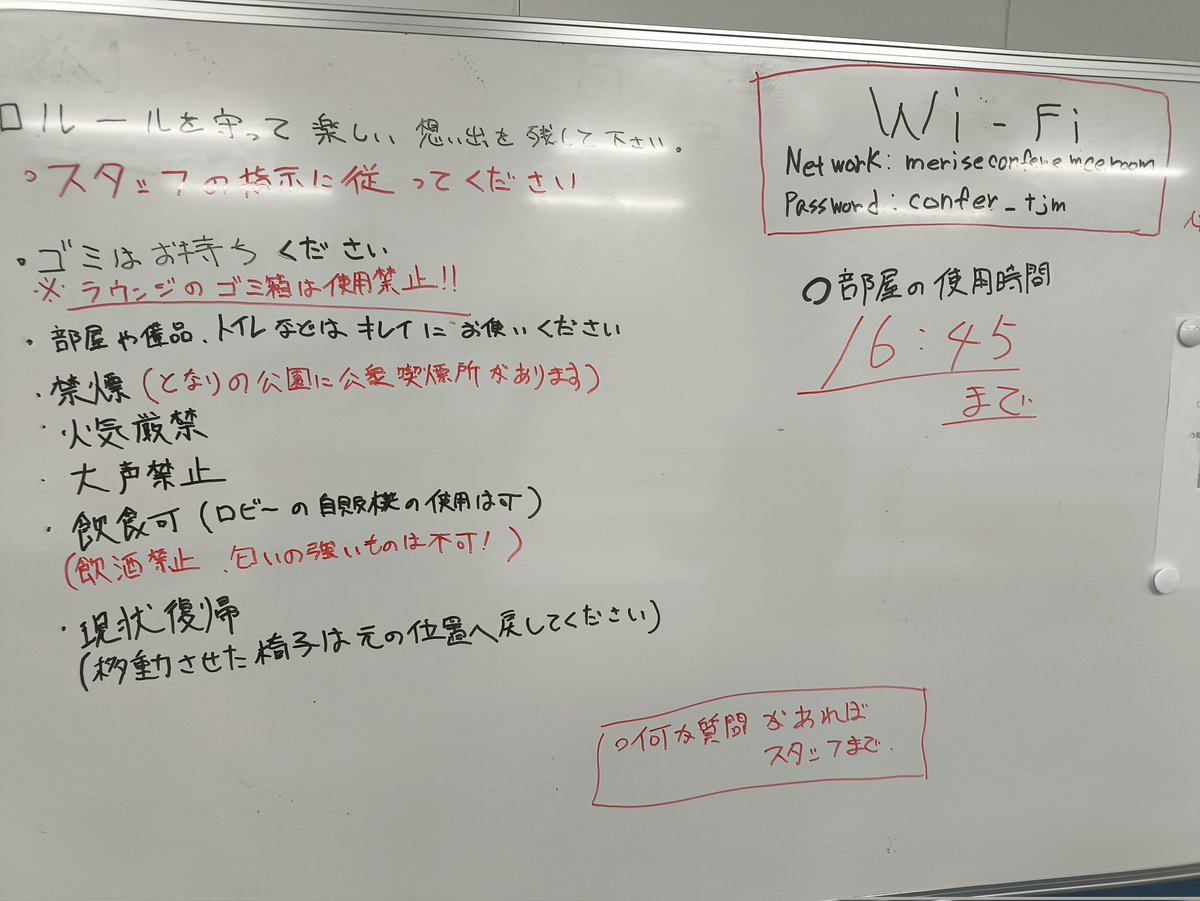 ロルールを守って楽しい想い出を残して下さい。
。スタッフの指示に従ってください
・ゴミはお持ちください
※ラウンジのゴミ箱は使用禁止!!
・部屋や備品、トイレなどはキレイにお使いください
・禁煙(となりの公園に公衆喫煙所があります)
・火気厳禁
・大声禁止
・飲食可(ロビーの自販機の使用は可)
(飲酒禁止、匂いの強いものは不可!)
・現状復帰
(移動させた椅子は元の位置へ戻してください)
Wi-Fi
Network: meriseconferemceroom
Password: confer_tjm
○部屋の使用時間
16:45
まで
○何か質問があれば
スタッフまで